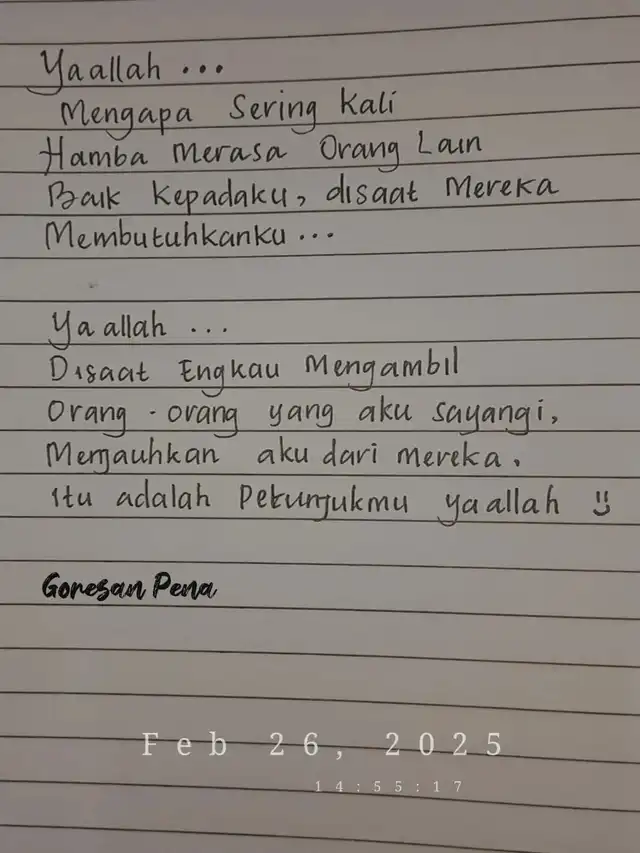 Yaallah ...
Mengapa Sering Kali
Hamba Merasa Orang Lain
Baik Kepadaku, disaat Mereka
Membutuhkanku ...
Ya allah ...
Disaat Engkau Mengambil
Orang - orang yang aku sayangi,
Menjauhkan aku dari mereka,
itu adalah Petunjukmu ya allah
Goresan Pena
Feb 26, 2025
14:55:17